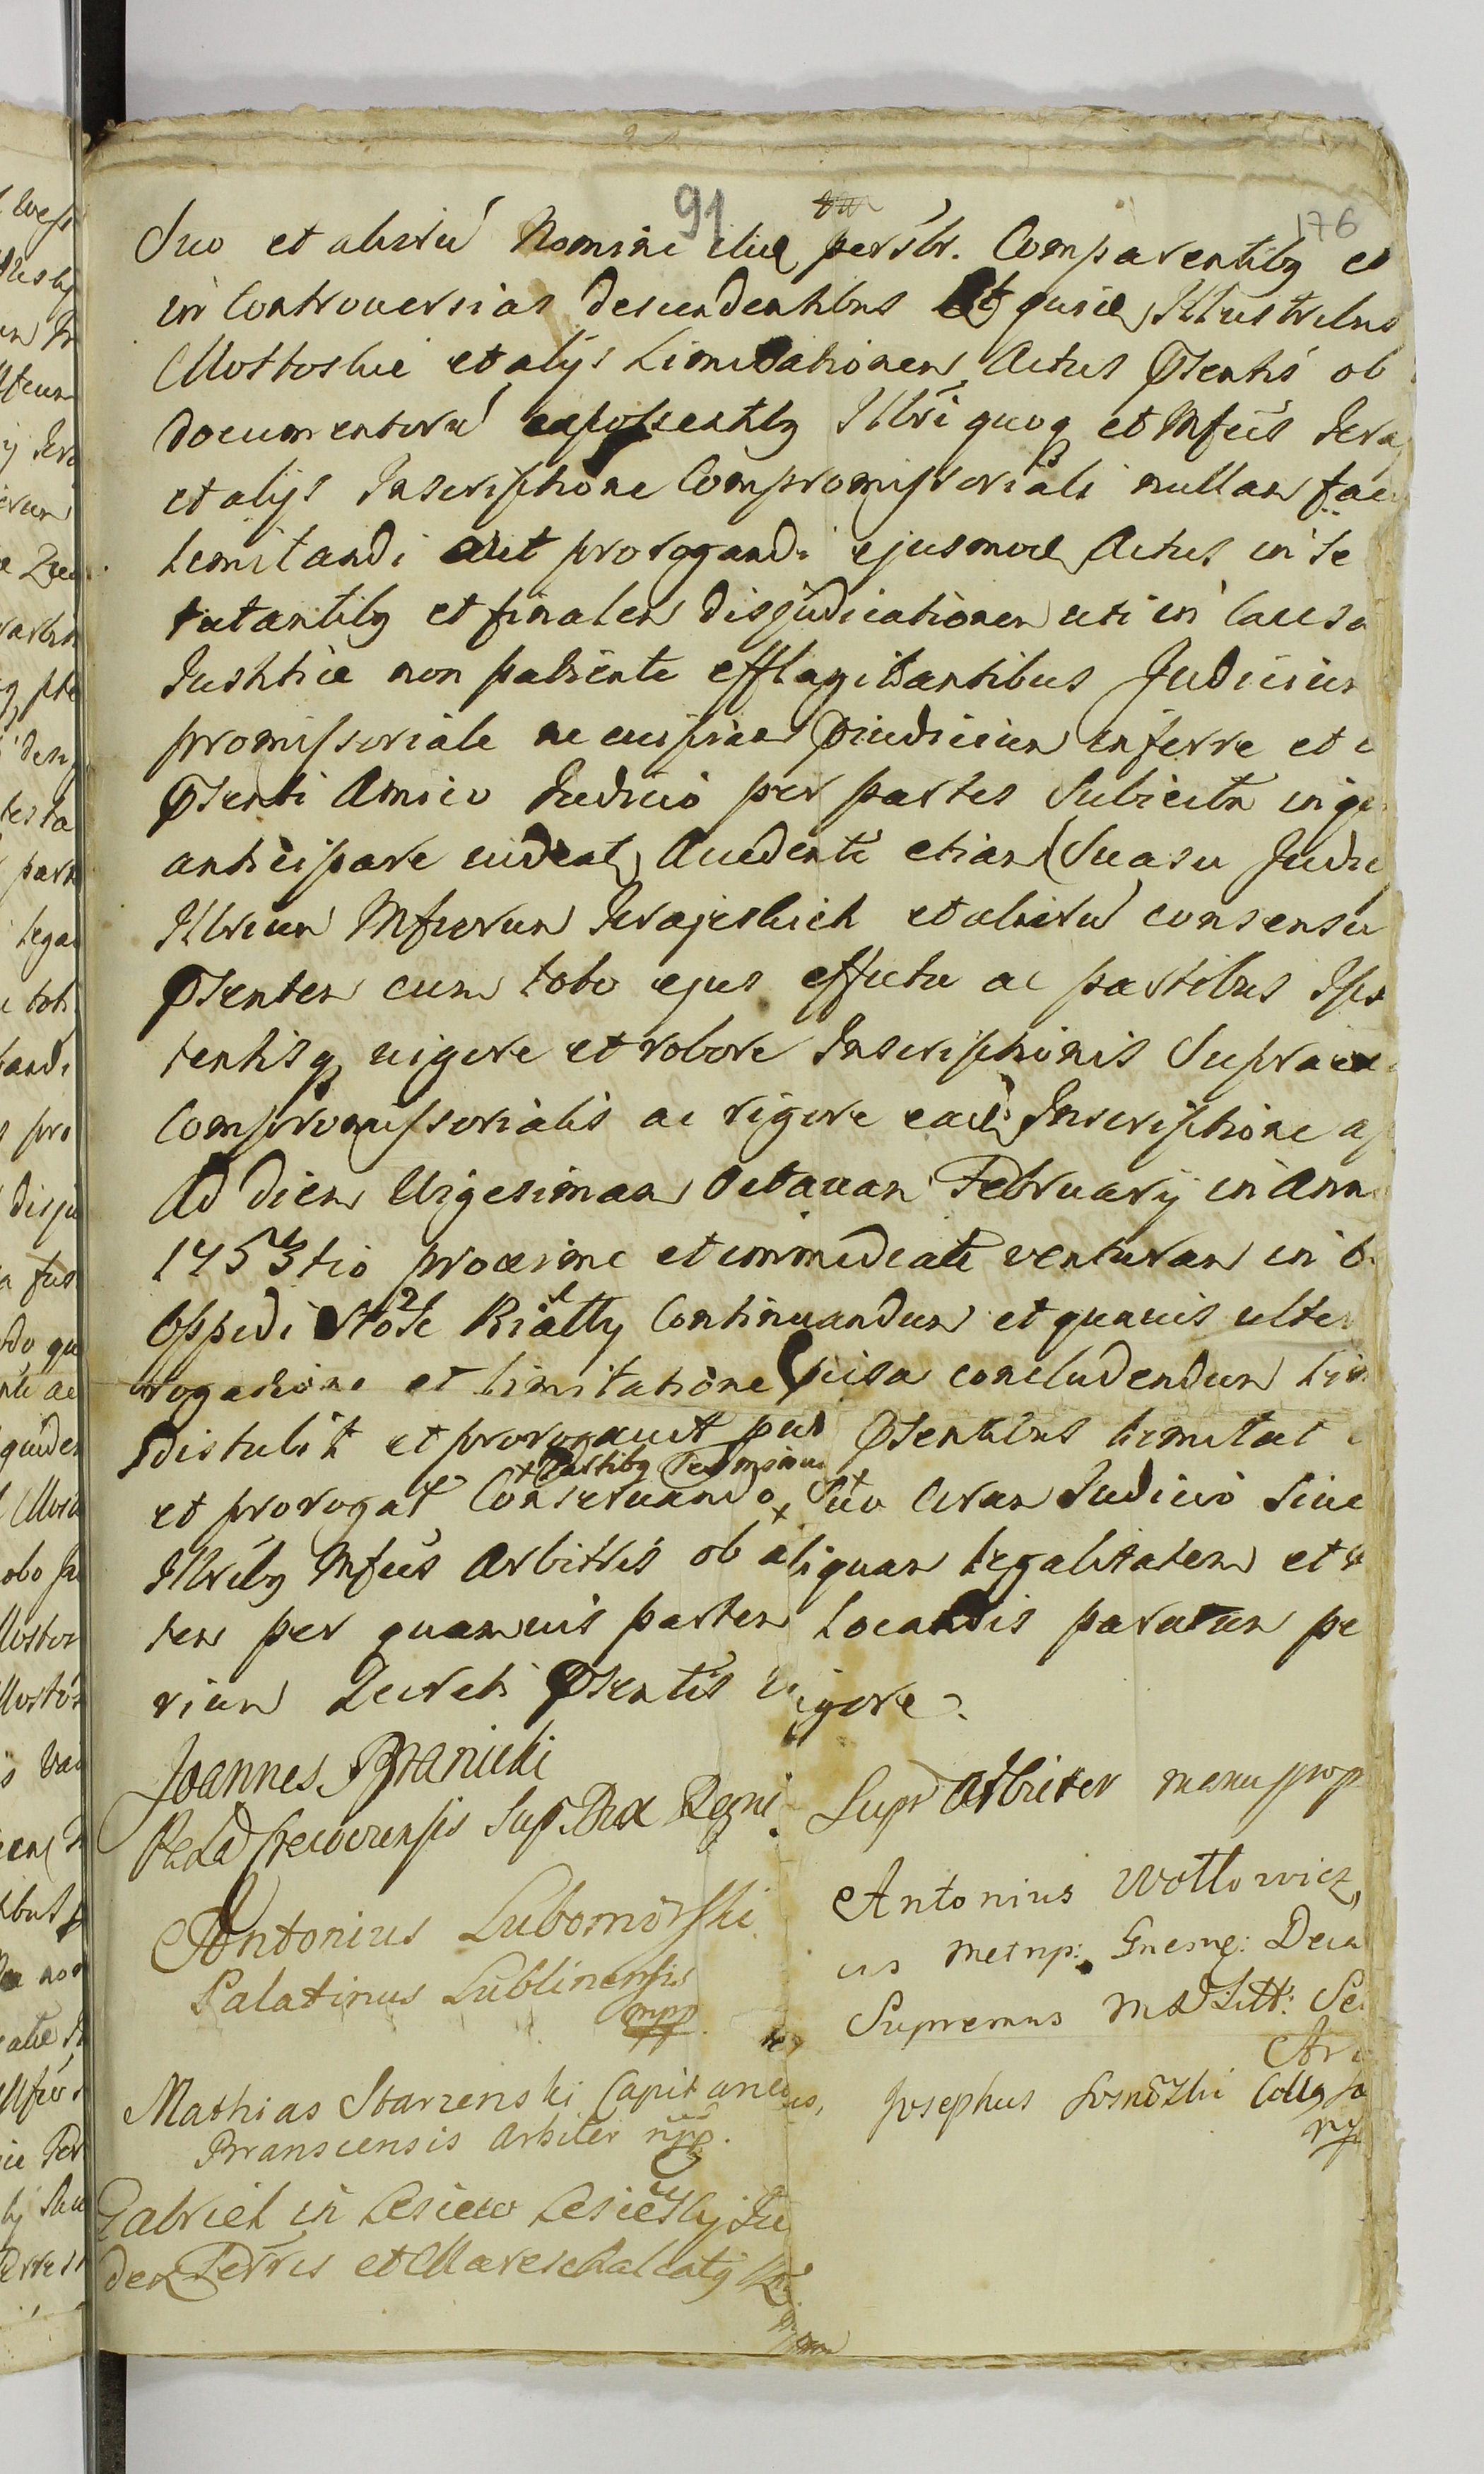 91
176
Suo et aliorũ Nomine eliđ perslr. Comparentibg et
in Controversias descendentibus Atq guiđ Illustribus
Mostoskie et alijs Limitationem Actus Psentis ob
documentorũ exposcentibg Illri quoq et Mfcis Kra
et alijs Inscriptione Compromissoriali nullam fac
Limitandi aut prorogandi ejusmođ Actus in se
tutantibg et finalem disjudicationem uti in Causa
Justitiæ non patiente efflagitantibus Judicium
promissoriale ne cuipiam Pjudicium inferre et
Psenti Amico Judicio per partes Subiecta inge
anticipare videat, Accedente etiam Suasu Judic
Illrium Mficorum Krajeskich et aliorũ consensu
Psentem cum toto ejus effectu ac partibus Ips
tentisq vigore et robore Inscriptionis Supra
Compromissorialis ac rigore eađ Inscriptione a
Ad diem Vigesimam Octavam February in Ann
1753tio proxime et immediate venturam in
Oppidi Stołe Białły Continuandum et quavis ulter
rogatione et limitatione Pcisa concludendum
distulit et prorogavit put Psentibus limitat
et prorogat Conservando + Partibg Terminum + Suo Coram Judicio Sive
Illribg Mfcis Arbitris ob aliquam legalitatem et
tem per quamvis partem Locandis paratum pe
rium Decreti Psentis vigore.
Joannes Branicki
Palđ Cracoviensis Sup. Dux Regni Supr Arbiter manu prop
Antonius Lubomirski
Palatinus Lublinensis
mpp
Antonius Wołłowicz
us Metrop: Gnesne: Deca
Supremus M D Litt: Se
Ar
Mathias Starzenski Capitaneus,
Bransciensis Arbiter mpp.
Josephus Sosnowski Colla
mp
Gabriel in Lesiew Lesiewskj Ju
dex Terrѕ et Mareschalcatg